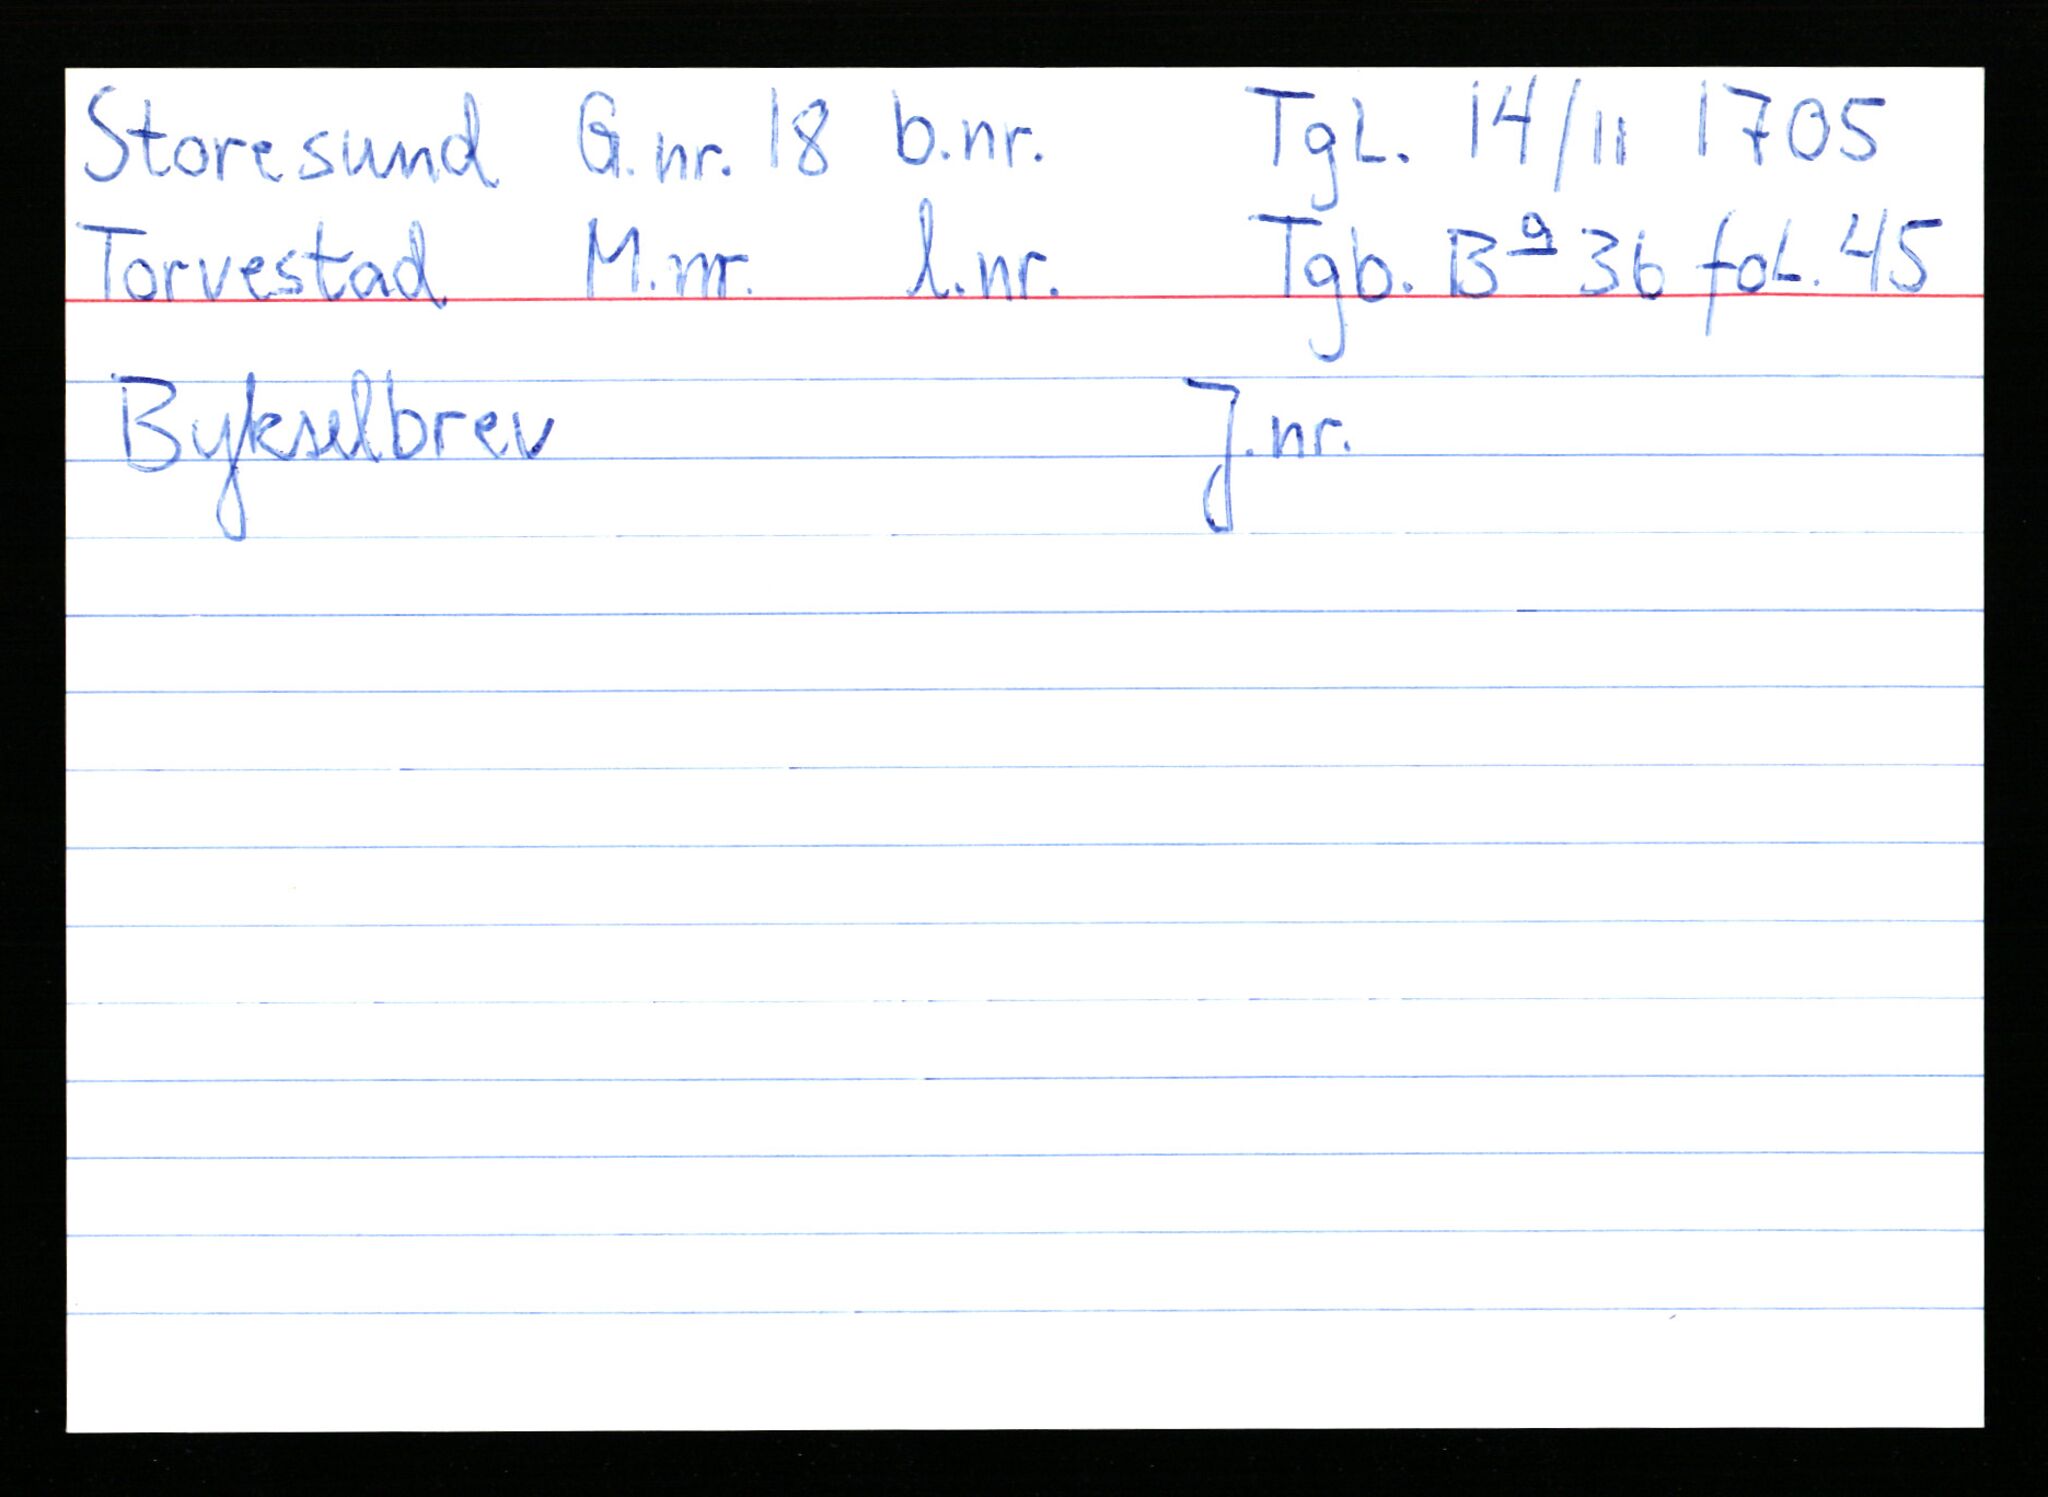 Storesund G.nr. 18 b.nr. Tgl. 14/11 1705
Torvestad M.nr. l.nr. Tgb. Bª 36 fol. 45
Bykselbrev J.nr.